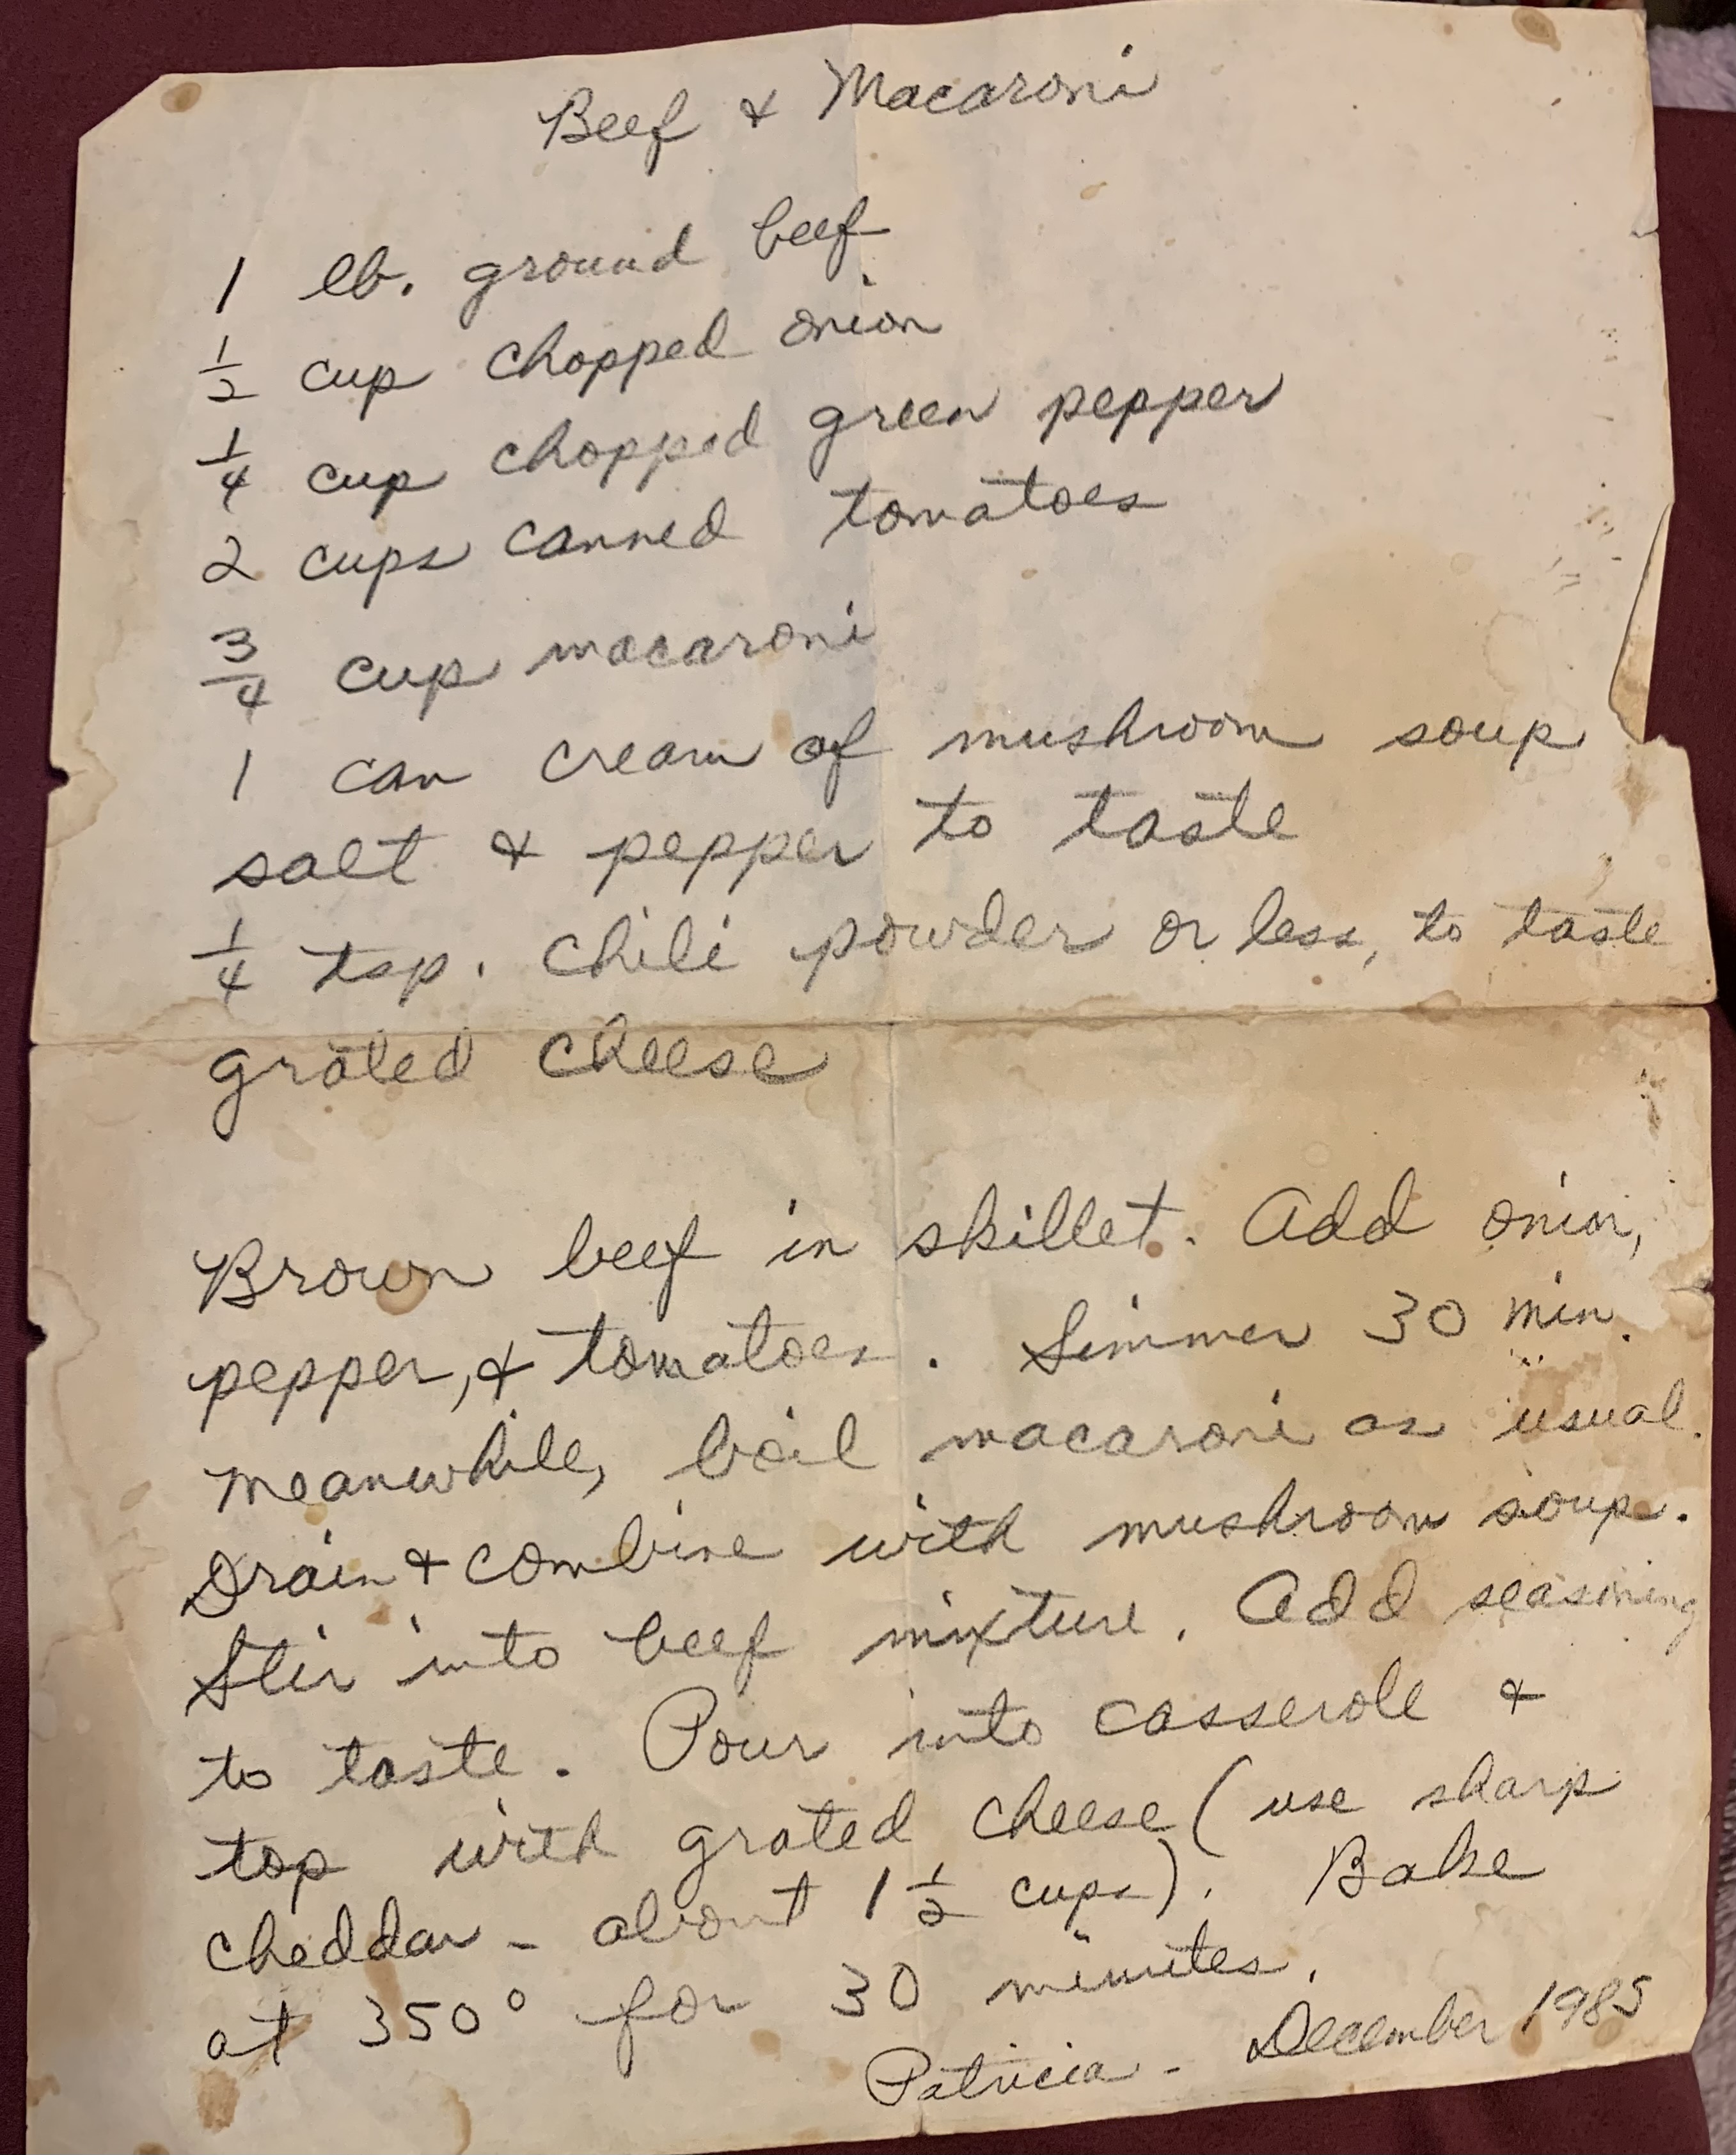 Beef & Macaroni
1 lb. ground beef
1/2 cup chopped onion
1/4 cup chopped green pepper
2 cups canned tomatoes
3/4 cup macaroni
1 can cream of mushroom soup
salt & pepper to taste
1/4 tsp. chili powder or less, to taste
grated cheese
Brown beef in skillet. Add onion,
pepper, & tomatoes. Simmer 30 min.
Meanwhile, boil macaroni as usual.
Drain & combine with mushroom soup.
Stir into beef mixture. Add seasoning
to taste. Pour into casserole &
top with grated cheese (use sharp
cheddar - about 1 1/2 cups). Bake
at 350° for 30 minutes.
Patricia - December 1985